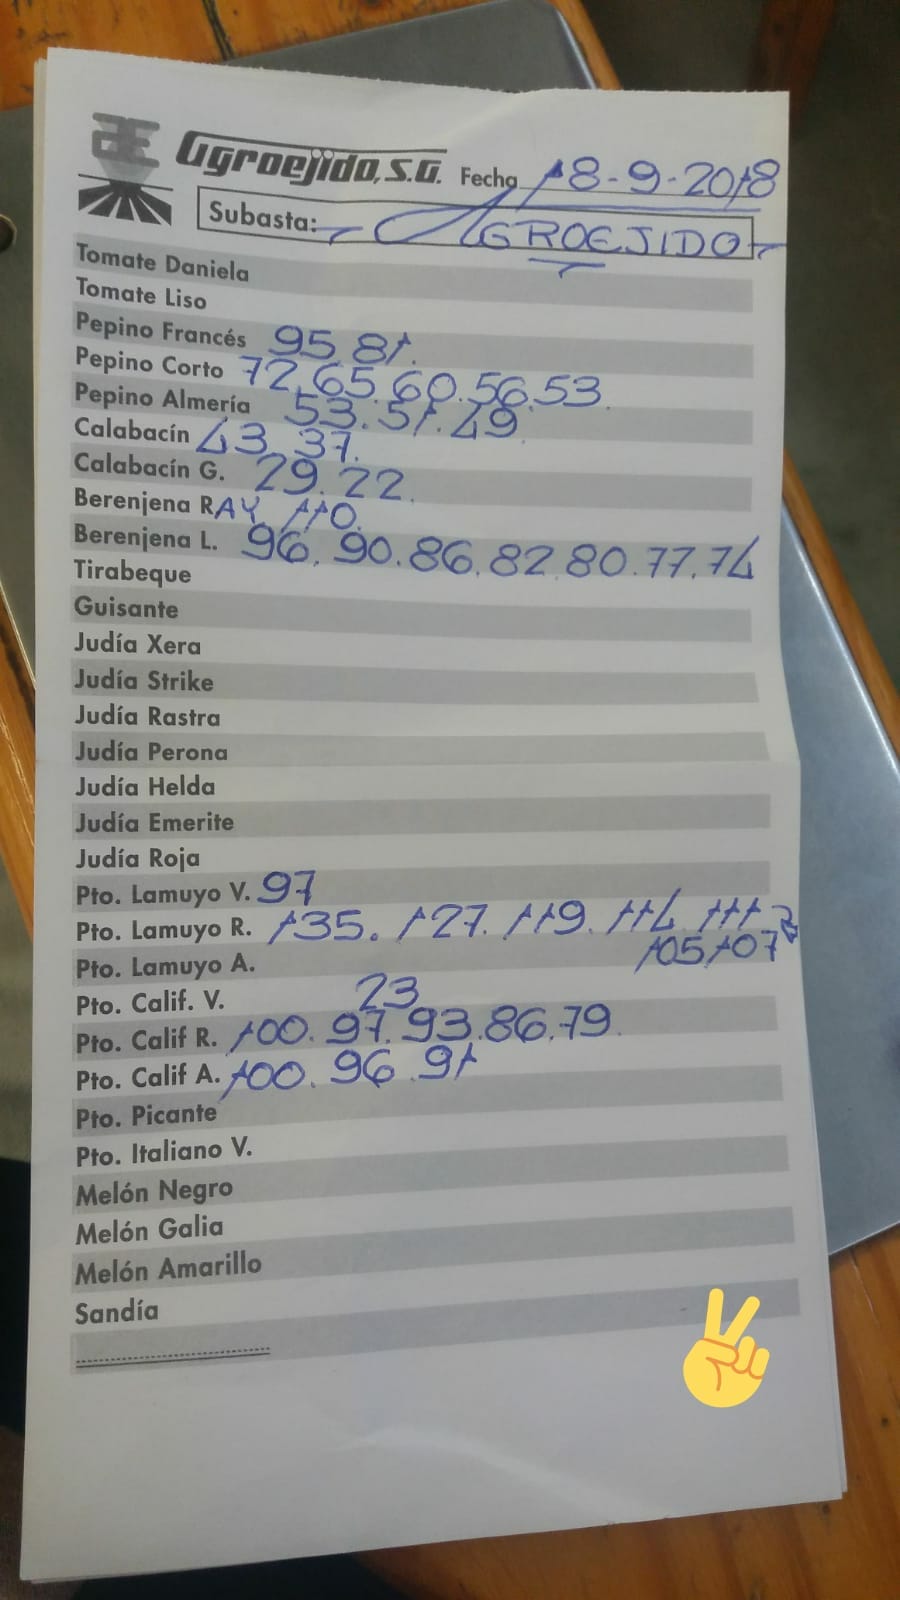 Agroejido, S.A. Fecha 18-9-2018
Subasta: AGROEJIDO
Tomate Daniela
Tomate Liso
Pepino Francés 95.81.
Pepino Corto 72.65.60.56.53.
Pepino Almería 53.51.49
Calabacín 43.37.
Calabacín G. 29.22.
Berenjena RAY 110.
Berenjena L. 96.90.86.82.80.77.74
Tirabeque
Guisante
Judía Xera
Judía Strike
Judía Rastra
Judía Perona
Judía Helda
Judía Emerite
Judía Roja
Pto. Lamuyo V. 97
Pto. Lamuyo R. 135.127.119.114.111.
105,107
Pto. Lamuyo A.
Pto. Calif. V. 23
Pto. Calif R. 100.97.93.86.79.
Pto. Calif A. 100.96.91
Pto. Picante
Pto. Italiano V.
Melón Negro
Melón Galia
Melón Amarillo
Sandía